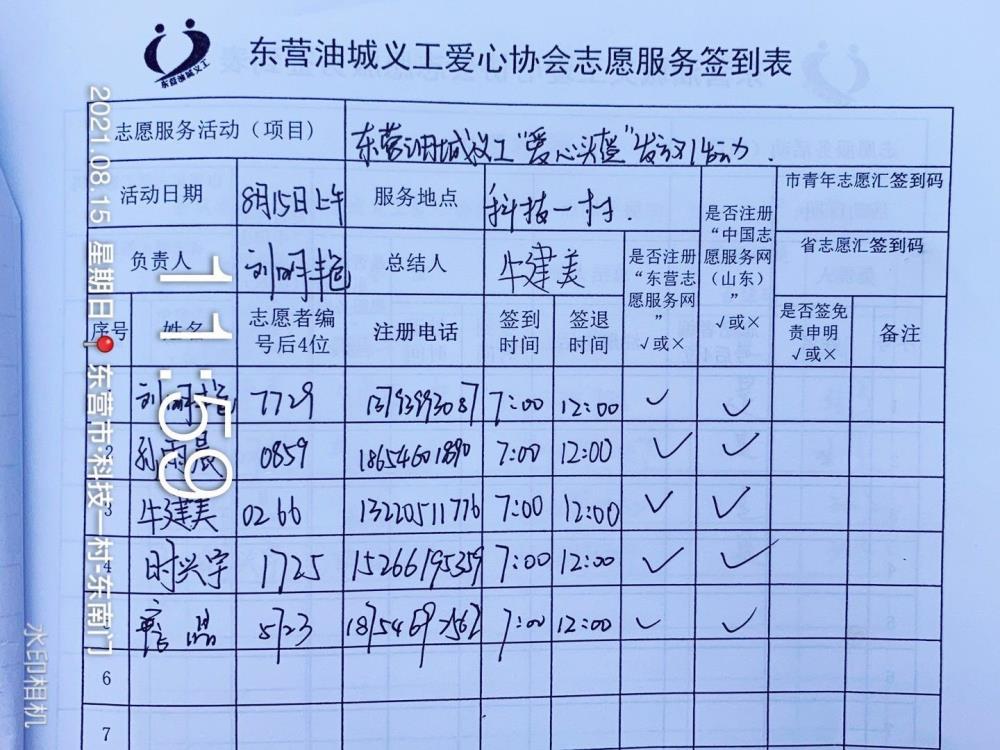 东营油城义工
东营油城义工爱心协会志愿服务签到表
志愿服务活动（项目） 东营油城义工“爱心头盔”发放活动.
活动日期 8月15日上午 服务地点 科技一村 市青年志愿汇签到码
负责人 刘明艳 总结人 牛建美 是否注册“东营志愿服务网” √或× 是否注册“中国志愿服务网（山东）” √或× 省志愿汇签到码
序号 姓名 志愿者编号后4位 注册电话 签到时间 签退时间 是否签免责申明 √或× 备注
刘明艳 7729 13793993087 7:00 12:00 ✓ ✓
2 孙雨晨 0859 18654601890 7:00 12:00 ✓ ✓
3 牛建美 0266 13220511776 7:00 12:00 ✓ ✓
4 时兴宇 1725 15266195359 7:00 12:00 ✓ ✓
5 詹晶 5723 7:00 12:00 ✓ ✓
6
7
2021.08.15 星期日 东营市·科技一村-东南门
11:59
水印相机